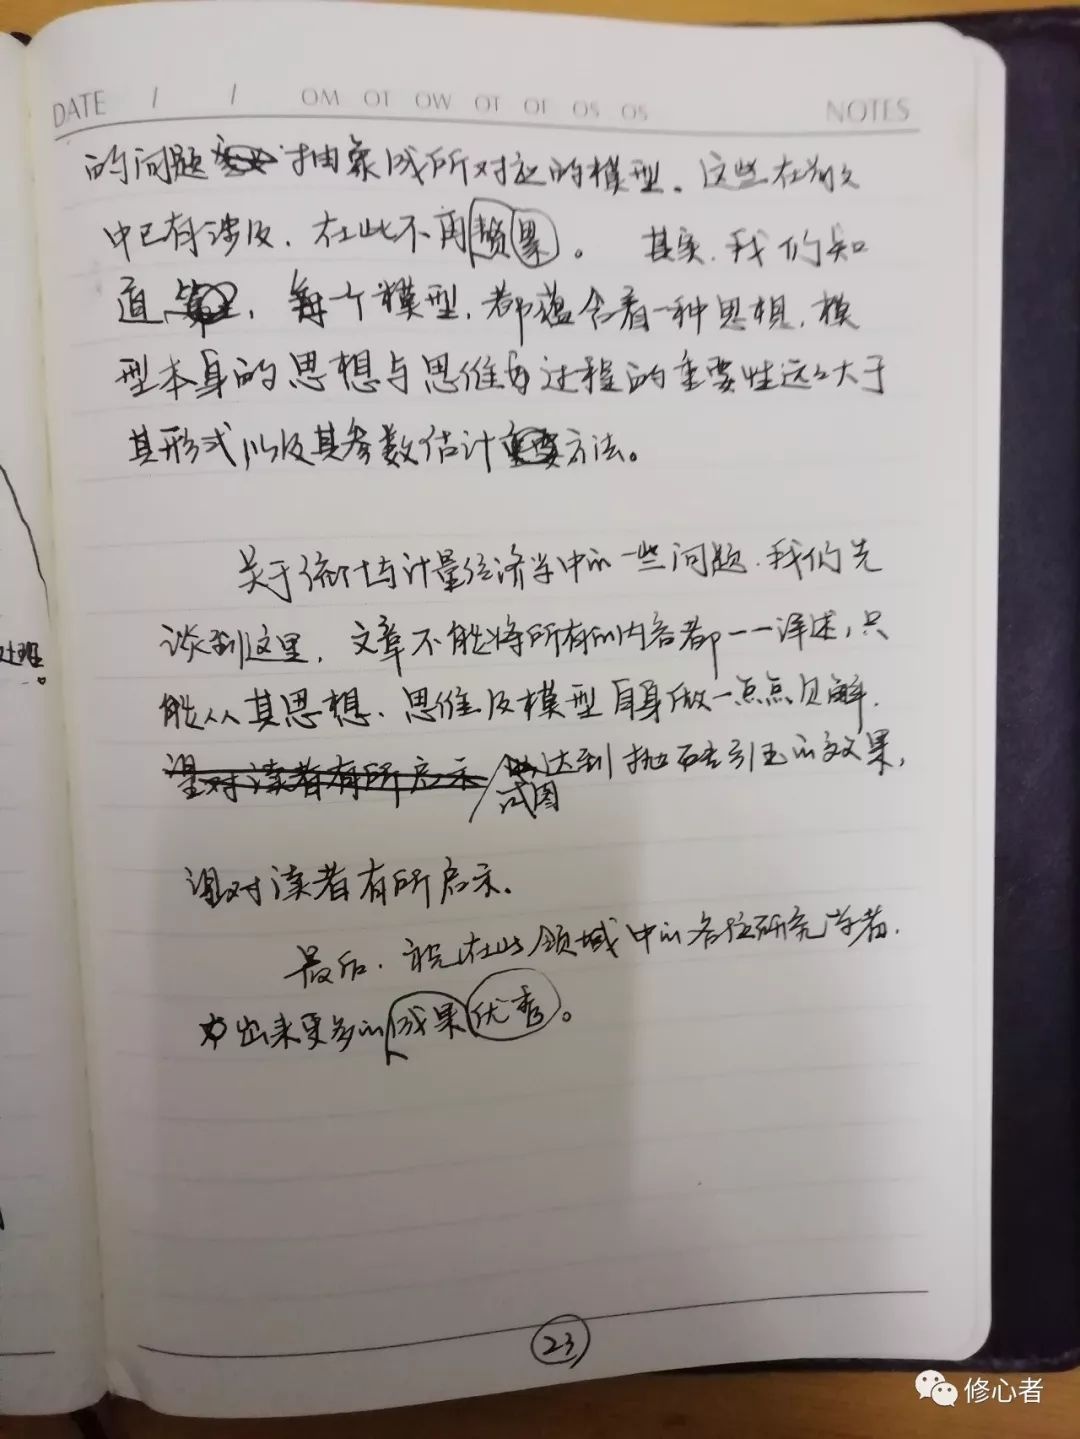 DATE / / OM OT OW OT OF OS OS NOTES
的问题抽象成所对应的模型。这些在前文
中已有涉及，在此不再赘累。其实，我们知
道，每一个模型，都蕴含着一种思想，模
型本身的思想与思维过程的重要性远远大于
其形式以及其参数估计方法。
关于统计与计量经济学中的一些问题，我们先
谈到这里，文章不能将所有的内容都一一详述，只
能从其思想、思维及模型自身做一点点见解，
望对读者有所启示 达到抛砖引玉的效果，
试图
望对读者有所启示。
最后，祝在此领域中的各位研究学者，
出来更多的成果优秀。
23
修心者